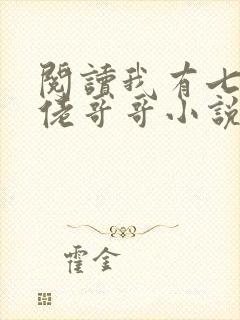 閱讀我有七
佬哥哥小說
霍金